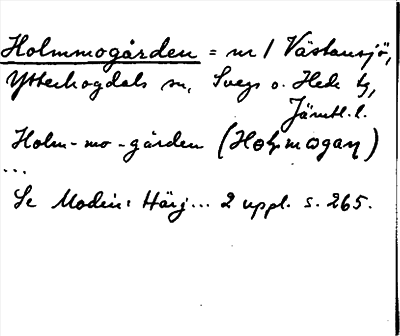 Holmmogården = nr 1 Västansjö,
Ytterhogdals sn, Svegs o. Hede tg,
Jämtl. l.
Holm-mo-gården (Holmogan)
...
Se Modin: Härj... 2 uppl. s. 265.